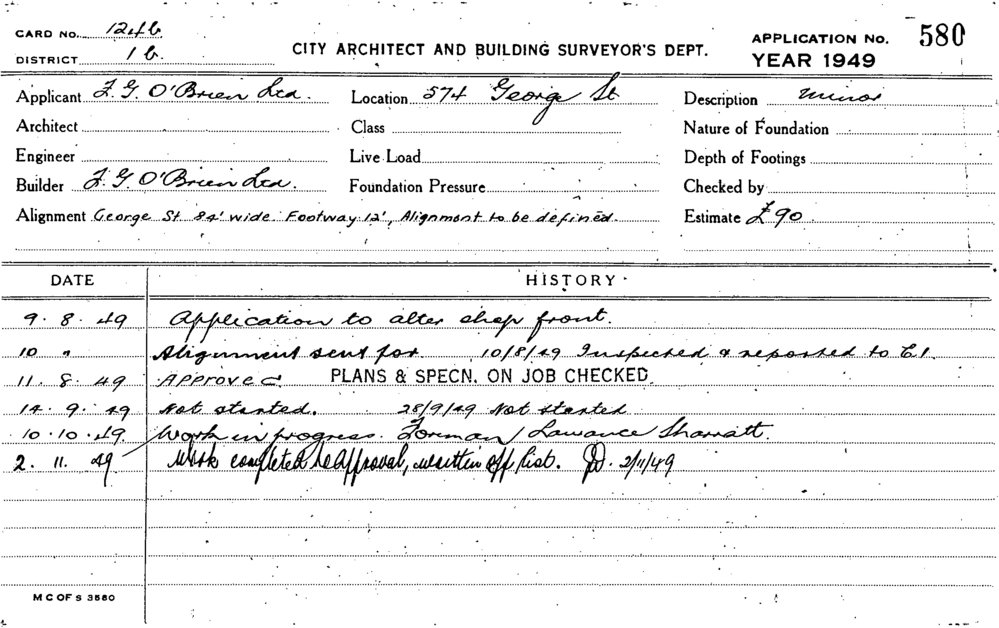 CARD No. 1246
DISTRICT 1b.
CITY ARCHITECT AND BUILDING SURVEYOR'S DEPT.
APPLICATION No. 580
YEAR 1949
Applicant F. G. O'Brien Ltd. Location 574 George St Description Minor
Architect Class Nature of Foundation
Engineer Live Load Depth of Footings
Builder F. G. O'Brien Ltd. Foundation Pressure Checked by
Alignment George St 84' wide Footway 12', Alignment to be defined. Estimate £90
DATE HISTORY
9. 8. 49 Application to alter shop front.
10 " Alignment sent for 10/8/49 Inspected & reported to C.I.
11. 8. 49 Approved PLANS & SPECN. ON JOB CHECKED
14. 9. 49 Not started. 28/9/49 Not started
10.10.49 Work in progress. Forman Lawance Sharratt.
2. 11. 49 Work completed to approval, written off list. 2/11/49
M C OF S 3580